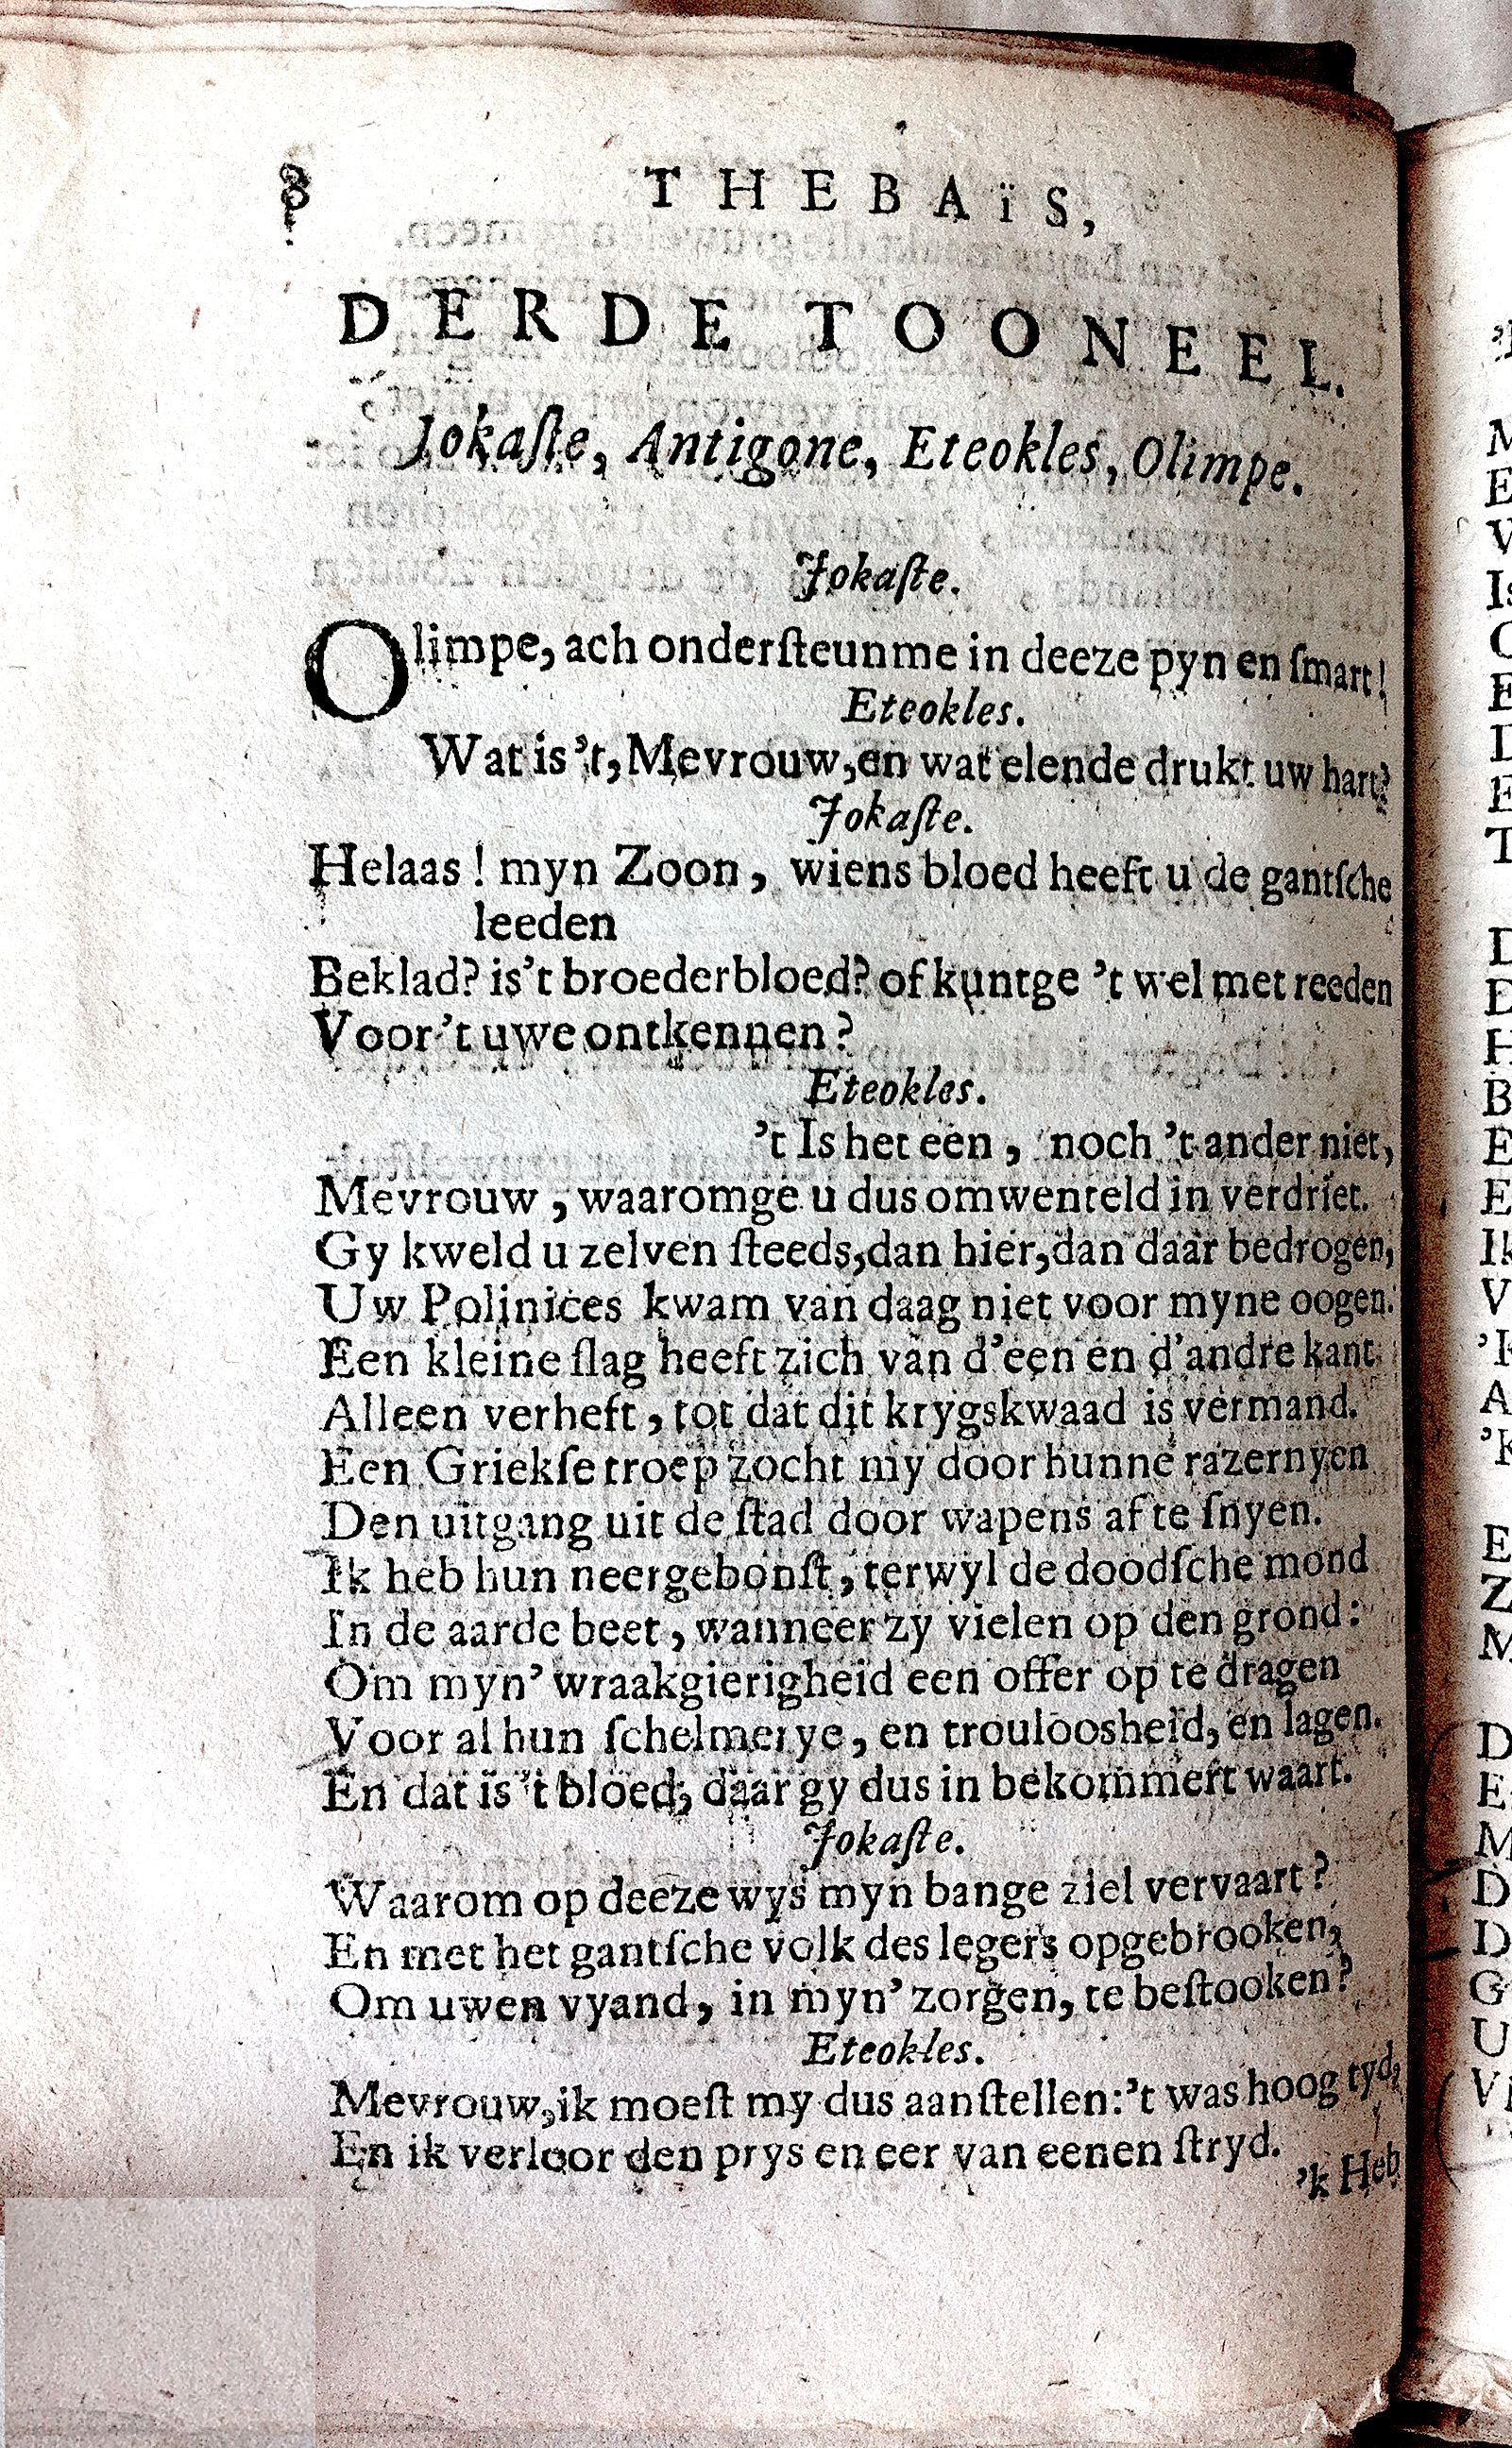 8
THEBAïS,
DERDE TOONEEL.
Jokaſte, Antigone, Eteokles, Olimpe.
Jokaſte.
Olimpe, ach onderſteunme in deeze pyn en ſmart!
Eteokles.
Wat is 't, Mevrouw, en wat elende drukt uw hart?
Jokaſte.
Helaas! myn Zoon, wiens bloed heeft u de gantſche
leeden
Beklad? is 't broederbloed? of kuntge 't wel met reeden
Voor 't uwe ontkennen?
Eteokles.
't Is het een, noch 't ander niet,
Mevrouw, waaromge u dus omwenteld in verdriet.
Gy kweld u zelven ſteeds, dan hier, dan daar bedrogen,
Uw Polinices kwam van daag niet voor myne oogen.
Een kleine ſlag heeft zich van d'een en d'andre kant
Alleen verheft, tot dat dit krygskwaad is vermand.
Een Griekſe troep zocht my door hunne razernyen
Den uitgang uit de ſtad door wapens af te ſnyen.
Ik heb hun neergebonſt, terwyl de doodſche mond
In de aarde beet, wanneer zy vielen op den grond:
Om myn' wraakgierigheid een offer op te dragen
Voor al hun ſchelmerye, en trouloosheid, en lagen.
En dat is 't bloed, daar gy dus in bekommert waart.
Jokaſte.
Waarom op deeze wys myn bange ziel vervaart?
En met het gantſche volk des legers opgebrooken,
Om uwen vyand, in myn' zorgen, te beſtooken?
Eteokles.
Mevrouw, ik moeſt my dus aanſtellen: 't was hoog tyd,
En ik verloor den prys en eer van eenen ſtryd.
'k Heb